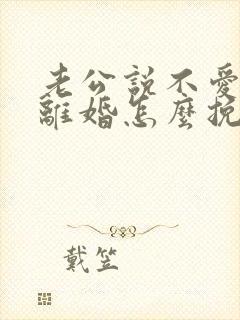 老公説不愛
離婚怎麼挽
戴笠